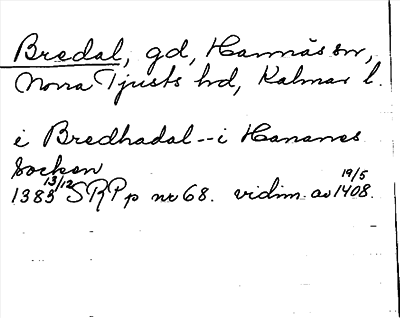 Bredal, gd, Hannäs sn,
Norra Tjusts hd, Kalmar l.
i Bredhadal -- i Hananes
Socken
1385 13/12 SRPp nr 68. vidim. av 1408. 19/5